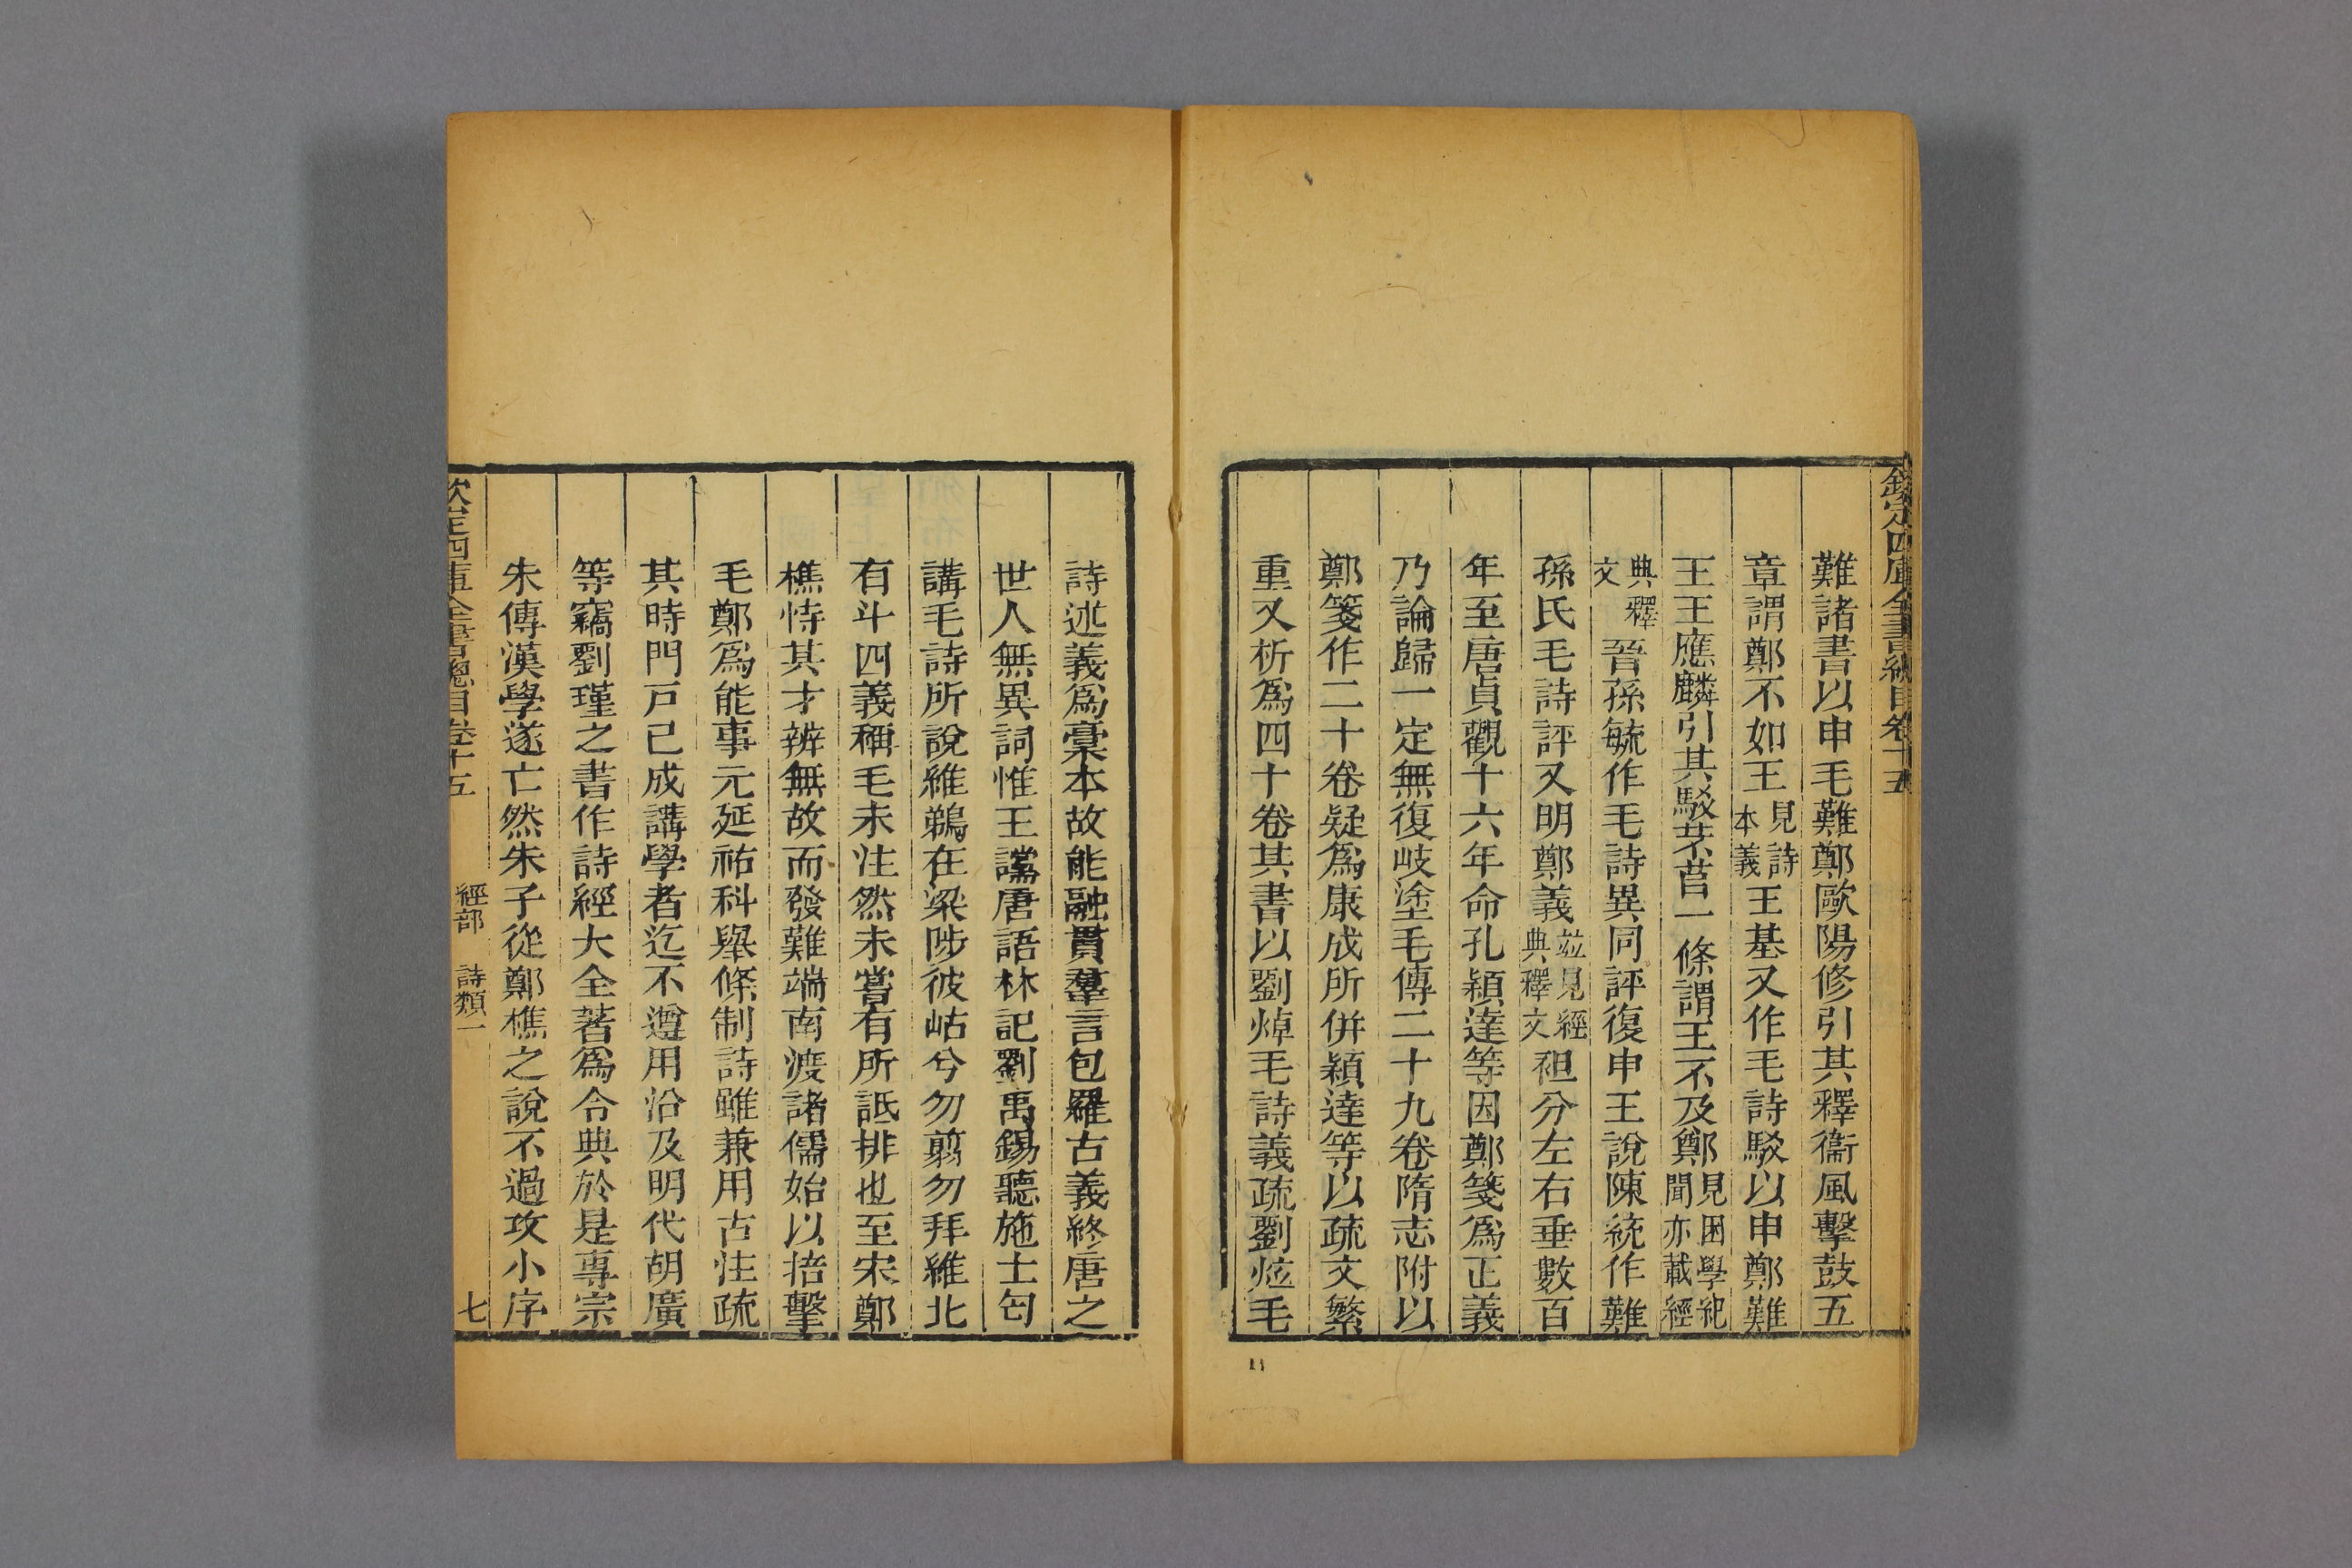 欽定四庫全書總目卷十五
難諸書以申毛難鄭歐陽修引其釋衞風擊鼓五
章謂鄭不如王見詩本義王基又作毛詩駁以申鄭難
王王應麟引其駁芣苢一條謂王不及鄭見困學紀聞亦載經
典釋文晉孫毓作毛詩異同評復申王說陳統作難
孫氏毛詩評又明鄭義並見經典釋文袒分左右垂數百
年至唐貞觀十六年命孔穎達等因鄭箋爲正義
乃論歸一定無復岐塗毛傳二十九卷隋志附以
鄭箋作二十卷疑爲康成所併穎達等以疏文繁
重又析爲四十卷其書以劉焯毛詩義疏劉炫毛
詩述義爲稾本故能融貫羣言包羅古義終唐之
世人無異詞惟王讜唐語林記劉禹錫聽施士匄
講毛詩所說維鵜在梁陟彼岵兮勿翦勿拜維北
有斗四義稱毛未注然未嘗有所詆排也至宋鄭
樵恃其才辨無故而發難端南渡諸儒始以掊擊
毛鄭爲能事元延祐科舉條制詩雖兼用古注疏
其時門戸已成講學者迄不遵用沿及明代胡廣
等竊劉瑾之書作詩經大全著爲令典於是專宗
朱傳漢學遂亡然朱子從鄭樵之說不過攻小序
欽定四庫全書總目卷十五 經部 詩類一 七